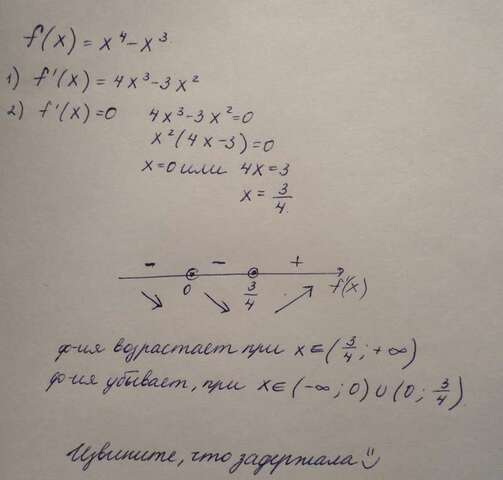 f(x) = x⁴ – x³.
1) f'(x) = 4x³ – 3x²
2) f'(x) = 0 4x³ – 3x² = 0
x²(4x – 3) = 0
x = 0 или 4x = 3
x = 3/4.
– – +
0 3/4 f'(x)
ф-ия возрастает при x ∈ (3/4; +∞)
ф-ия убывает, при x ∈ (-∞; 0) ∪ (0; 3/4).
Извините, что задержала